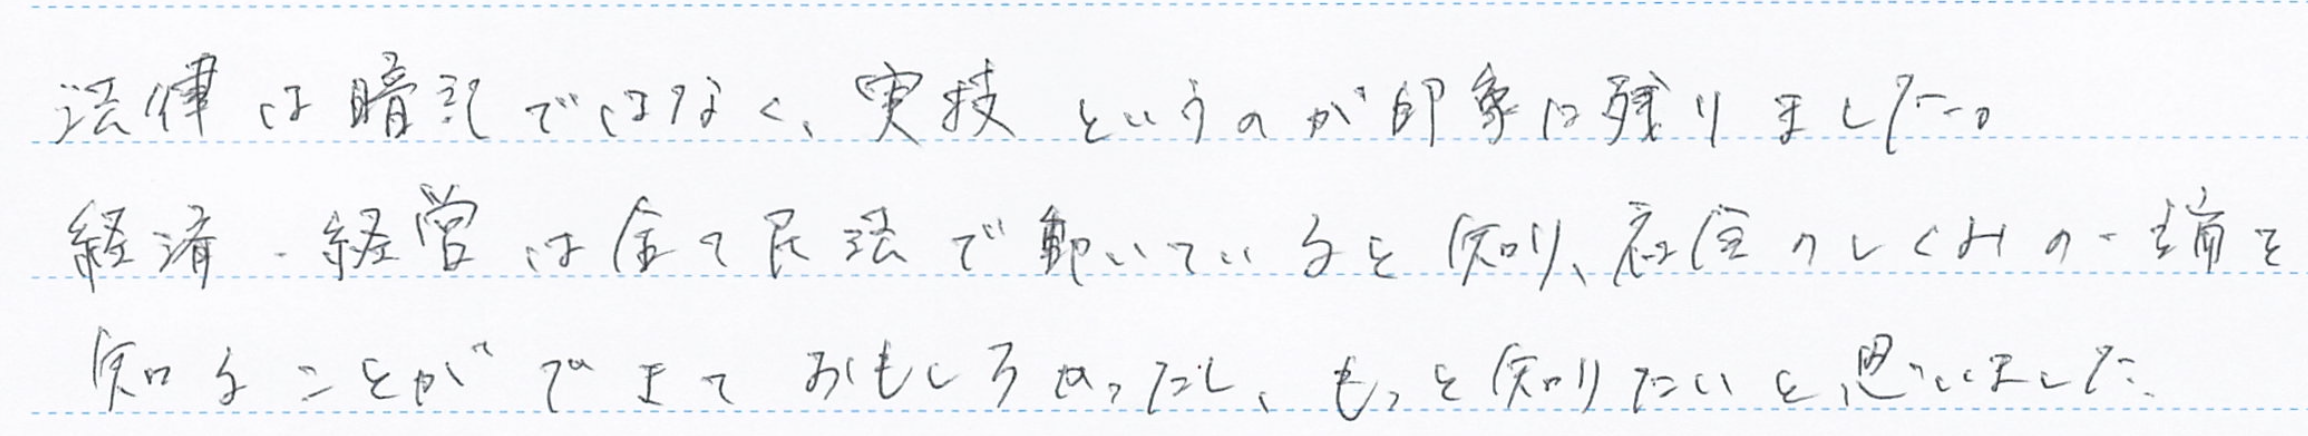 法律は暗記ではなく、実技というのが印象に残りました。
経済・経営は全て民法で動いていると知り、社会のしくみの一端を
知ることができておもしろかったし、もっと知りたいと思いました。